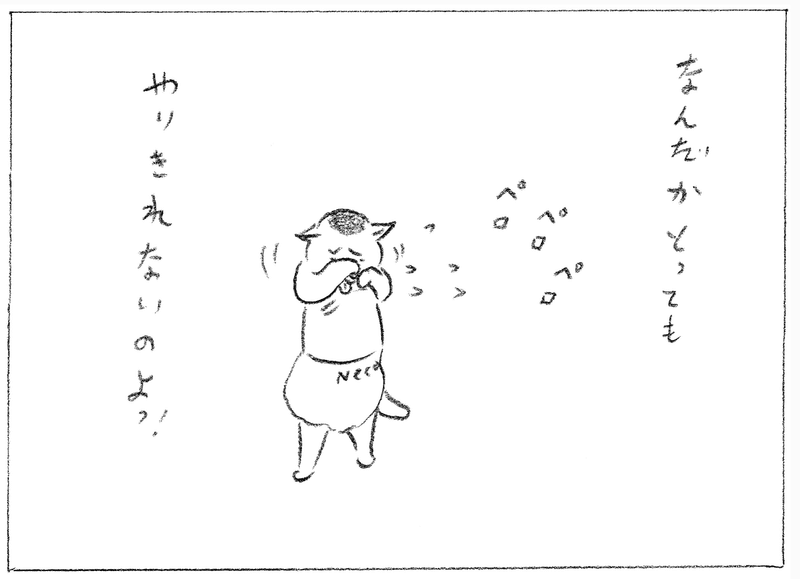 なんだかとっても
ペロ
ペロ
ペロ
Neco
やりきれないのよっ!